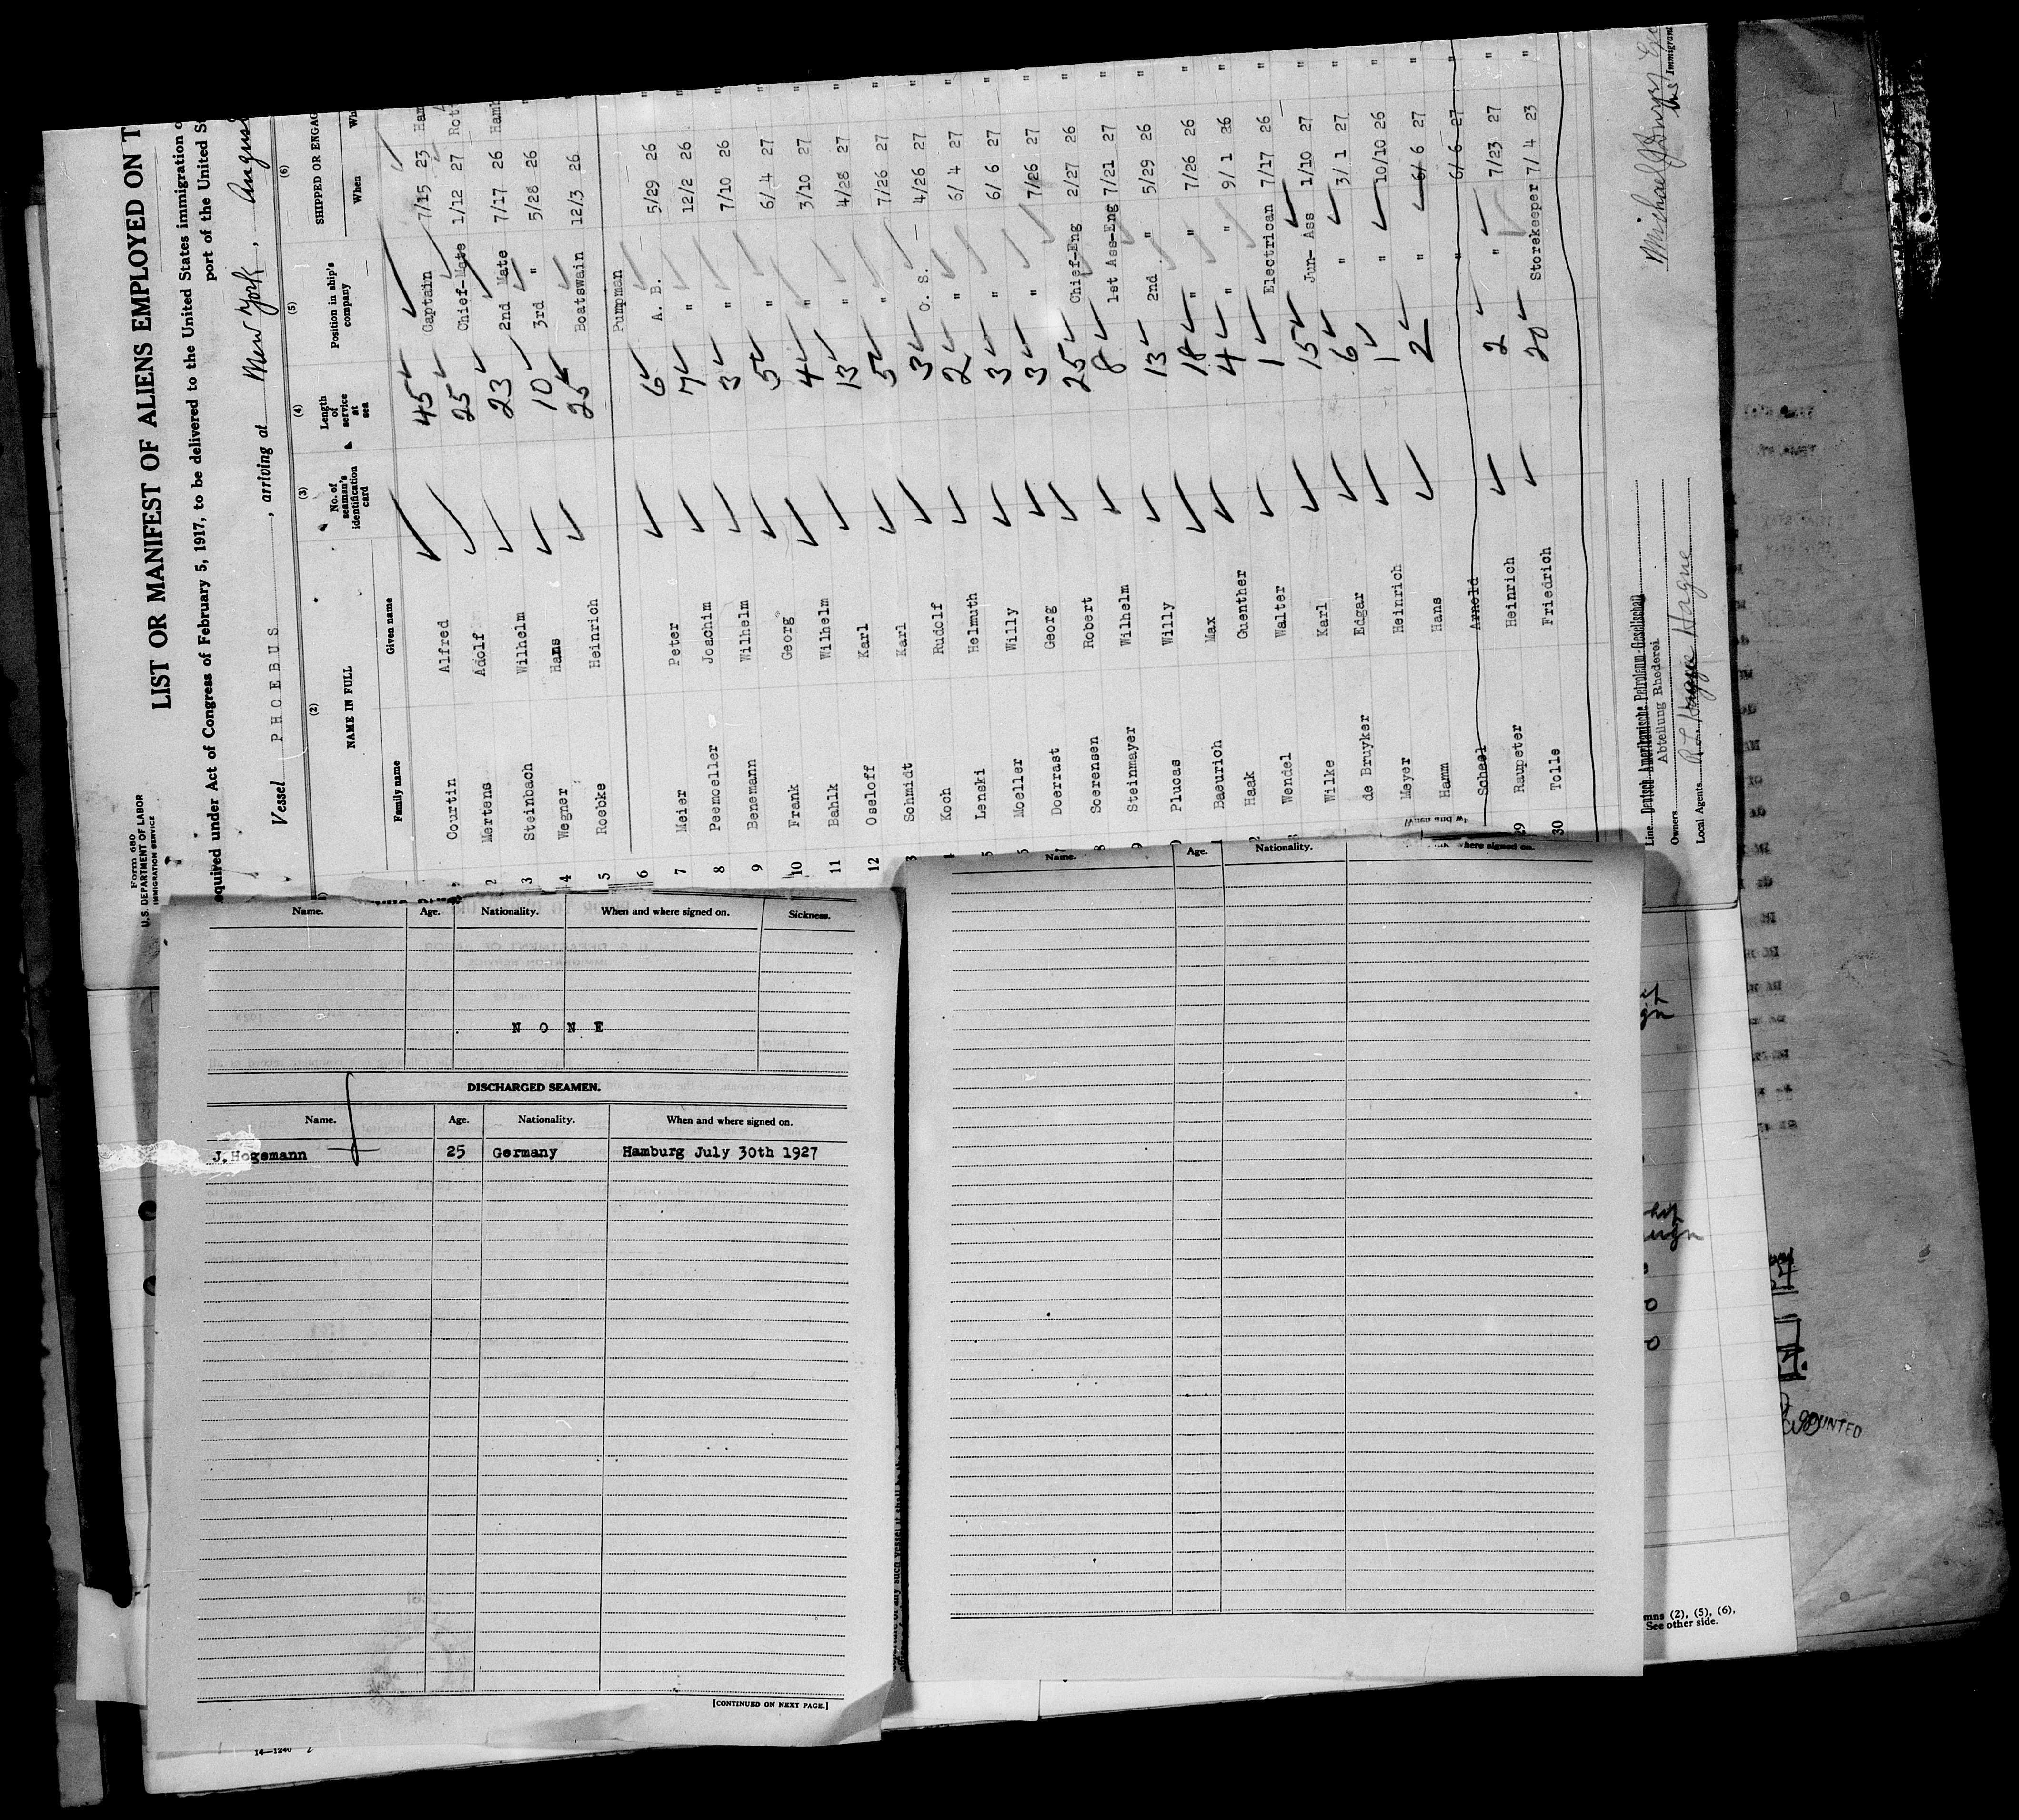 Form 680
U.S. DEPARTMENT OF LABOR
IMMIGRATION SERVICE
LIST OR MANIFEST OF ALIENS EMPLOYED ON T
equired under Act of Congress of February 5, 1917, to be delivered to the United States immigration o
port of the United St
Vessel PHOEBUS , arriving at New York , August
(2) (3) (4) (5) (6)
NAME IN FULL No. of seaman's identification card Length of service at sea Position in ship's company SHIPPED OR ENGAG
Family name Given name When Wh
Courtin Alfred 45 Captain 7/15 23 Ham
2 Mertens Adolf 25 Chief-Mate 1/12 27 Rot
3 Steinbach Wilhelm 23 2nd Mate 7/17 26 Hamb
4 Wegner Hans 10 3rd " 5/28 26 "
5 Roebke Heinrich 25 Boatswain 12/3 26 "
6 Pumpman
7 Meier Peter 6 A. B. 5/29 26 "
8 Peemoeller Joachim 7 " 12/2 26 "
9 Benemann Wilhelm 3 " 7/10 26 "
10 Frank Georg 5 " 6/ 4 27 "
11 Bahlk Wilhelm 4 " 3/10 27 "
12 Oseloff Karl 13 " 4/28 27 "
3 Schmidt Karl 5 " 7/26 27 "
4 Koch Rudolf 3 O. S. 4/26 27 "
5 Lenski Helmuth 2 " 6/ 4 27 "
6 Moeller Willy 3 " 6/ 6 27 "
7 Doerrast Georg 3 " 7/26 27 "
8 Soerensen Robert 25 Chief-Eng 2/27 26 "
9 Steinmayer Wilhelm 8 1st Ass-Eng 7/21 27 "
0 Plucas Willy 13 2nd " 5/29 26 "
1 Baeurich Max 18 " " 7/26 26 "
2 Haak Guenther 4 " " 9/ 1 26 "
3 Wendel Walter 1 Electrican 7/17 26 "
Wilke Karl 15 Jun- Ass 1/10 27 "
de Bruyker Edgar 6 " 3/ 1 27 "
Meyer Heinrich 1 " 10/10 26 "
Hamm Hans 2 " 6/ 6 27 "
Scheel Arnold " 6/ 6 27 "
29 Raupeter Heinrich 2 " 7/23 27 "
30 Tolle Friedrich 20 Storekeeper 7/ 4 23 "
Line Deutsch Amerikanische Petroleum-Gesellschaft
Owners Abteilung Rhederei.
Local Agents
Immigrant
Name. Age. Nationality. When and where signed on. Sickness.
NONE
DISCHARGED SEAMEN.
Name. Age. Nationality. When and where signed on.
J.Hogemann 25 Germany Hamburg July 30th 1927
[CONTINUED ON NEXT PAGE.]
14—1240
Name. Age. Nationality. where signed on.
mns (2), (5), (6),
See other side.